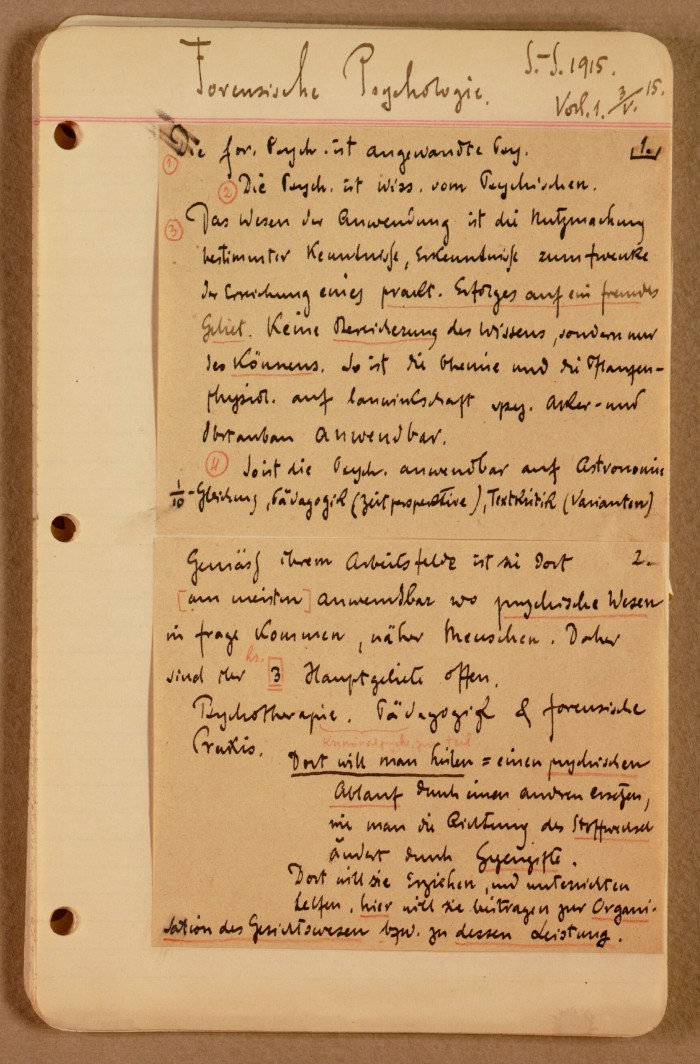 Forensische Psychologie. S.-S. 1915.
Vorl. 1. 3/V. 15.
1.
① Die for. Psych. ist angewandte Psy.
② Die Psych. ist wiss. vom Psychischen.
③ Das Wesen der Anwendung ist die Nutzmachung
bestimmter Kenntnisse, Erkenntnisse zum Zwecke
der Erreichung eines prakt. Erfolges auf ein fremdes
Gebiet. Keine Bereicherung des Wissens, sondern nur
des Könnens. So ist die Chemie und die Pflanzen-
physiol. auf Acker- und
Obstanbau anwendbar.
④ So ist die Psych. anwendbar auf Astronomie
1/10-Gleichung, Pädagogik (Zeitperspektive), Textkritik (Varianten)
2.
Gemäss ihrem Arbeitsfelde ist sie dort
[am meisten] anwendbar wo psychische Wesen
in frage kommen, näher Menschen. Daher
sind der hs. 3 Hauptgebiete offen.
Psychotherapie. Pädagogik & forensische
Praxis.
Dort will man heilen = einen psychischen
Ablauf durch einen andren ersetzen,
wie man die Richtung des Stoffwechsel
ändert durch Gegengifte.
Dort will sie Erziehen, und unterrichten
helfen, hier will sie beitragen zur Organi-
sation des Gerichtswesen bzw. zu dessen Leistung.